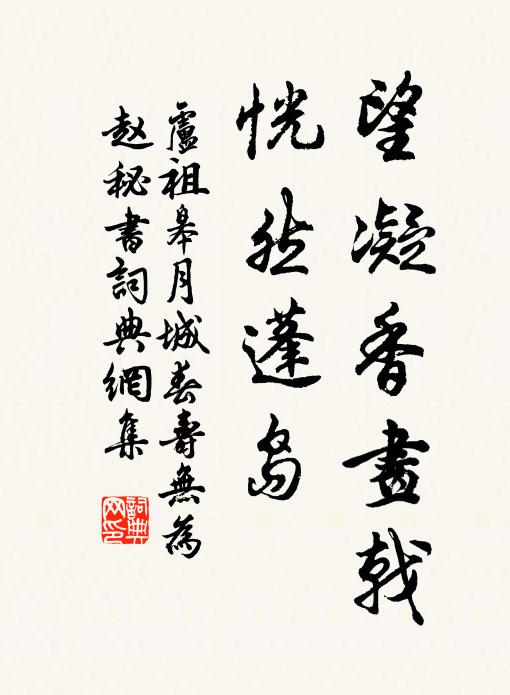 望凝香畫戟
恍然蓬島
盧祖皋月城春壽無為
赵秘書詞典網集
詞典
网印